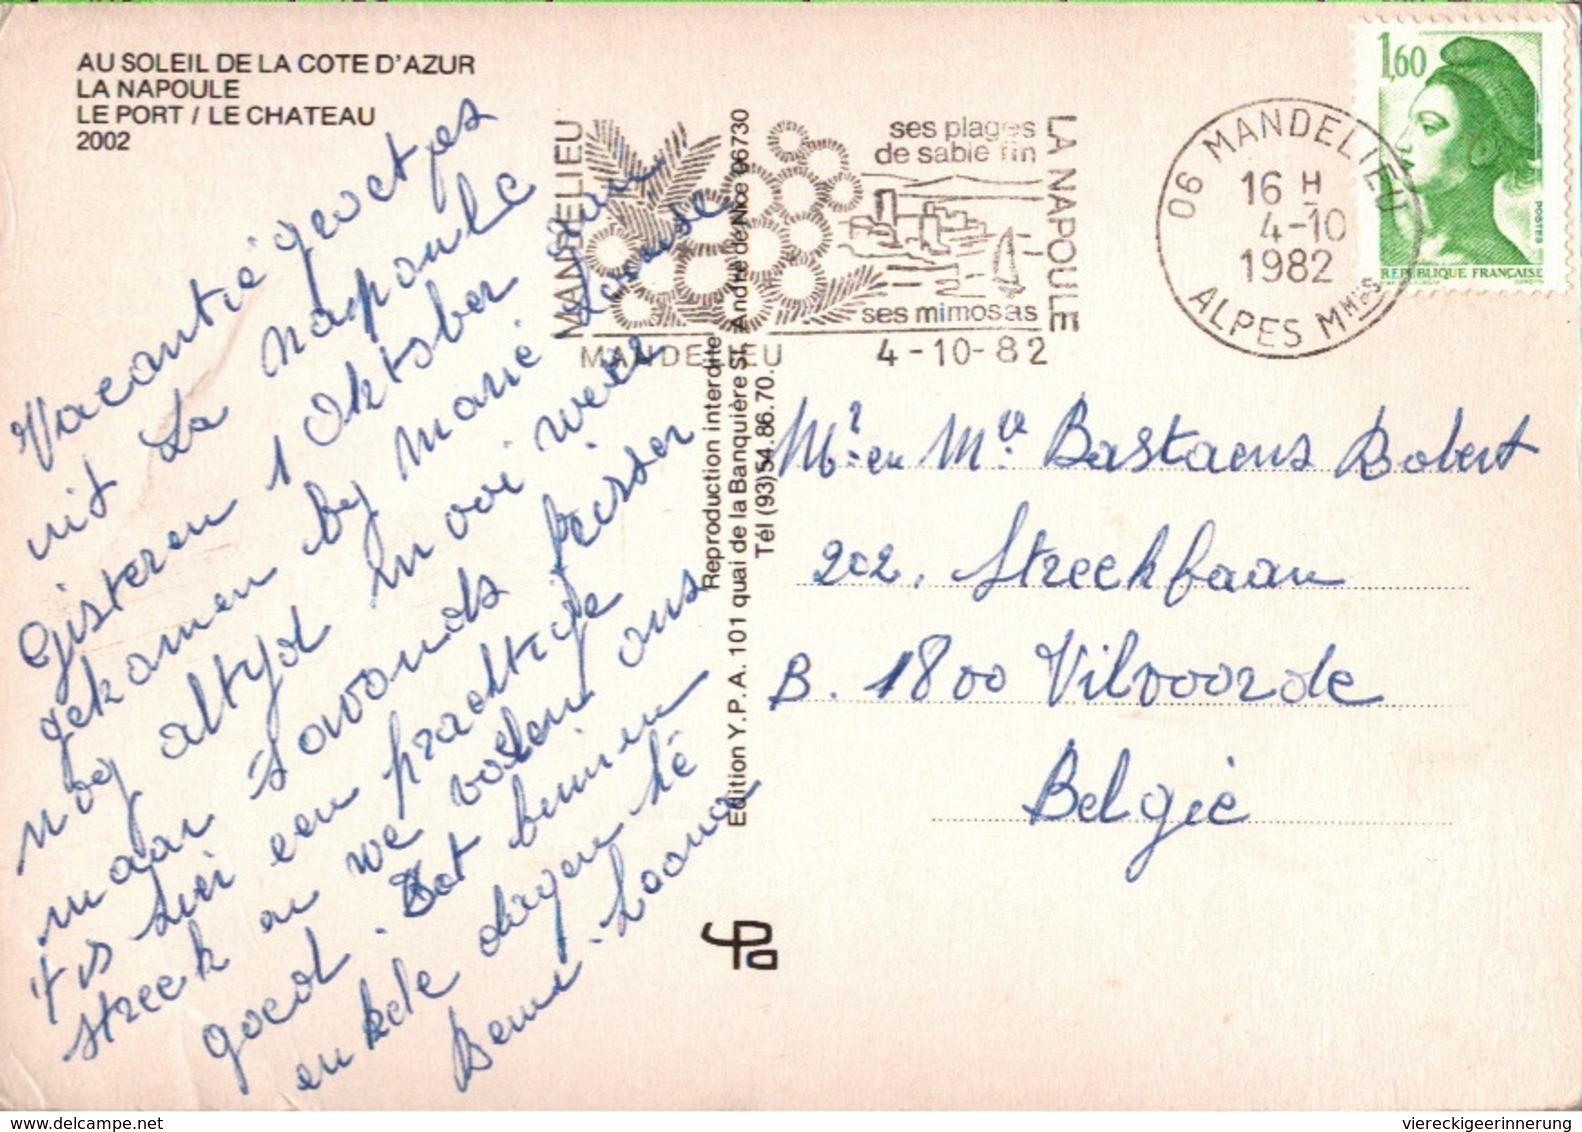 AU SOLEIL DE LA COTE D'AZUR
LA NAPOULE
LE PORT / LE CHATEAU
2002
Vacantie groetjes
uit La Napoule
Gisteren 1 Oktober aan
gekomen by Marie Louise
nog altyd mooi weer
maar savonds frisser
't is hier een prachtige
streek en we voelen ons
goed. Tot binnen
enkele dagen hé
Benu. Laona
Edition Y.P.A. 101 quai de la Banquière St. André de Nice 06730
Reproduction interdite
Tél (93) 54.86.70.
MANDELIEU
ses plages
de sable fin
ses mimosas
LA NAPOULE
MANDELIEU 4-10-82
06 MANDELIEU
16 H
4-10
1982
ALPES MMES
1,60
POSTES
REPUBLIQUE FRANÇAISE
Mr. en Mve Bastaens Robert
202, Streekbaan
B. 1800 Vilvoorde
België
delcampe.net
viereckigeerinnerung